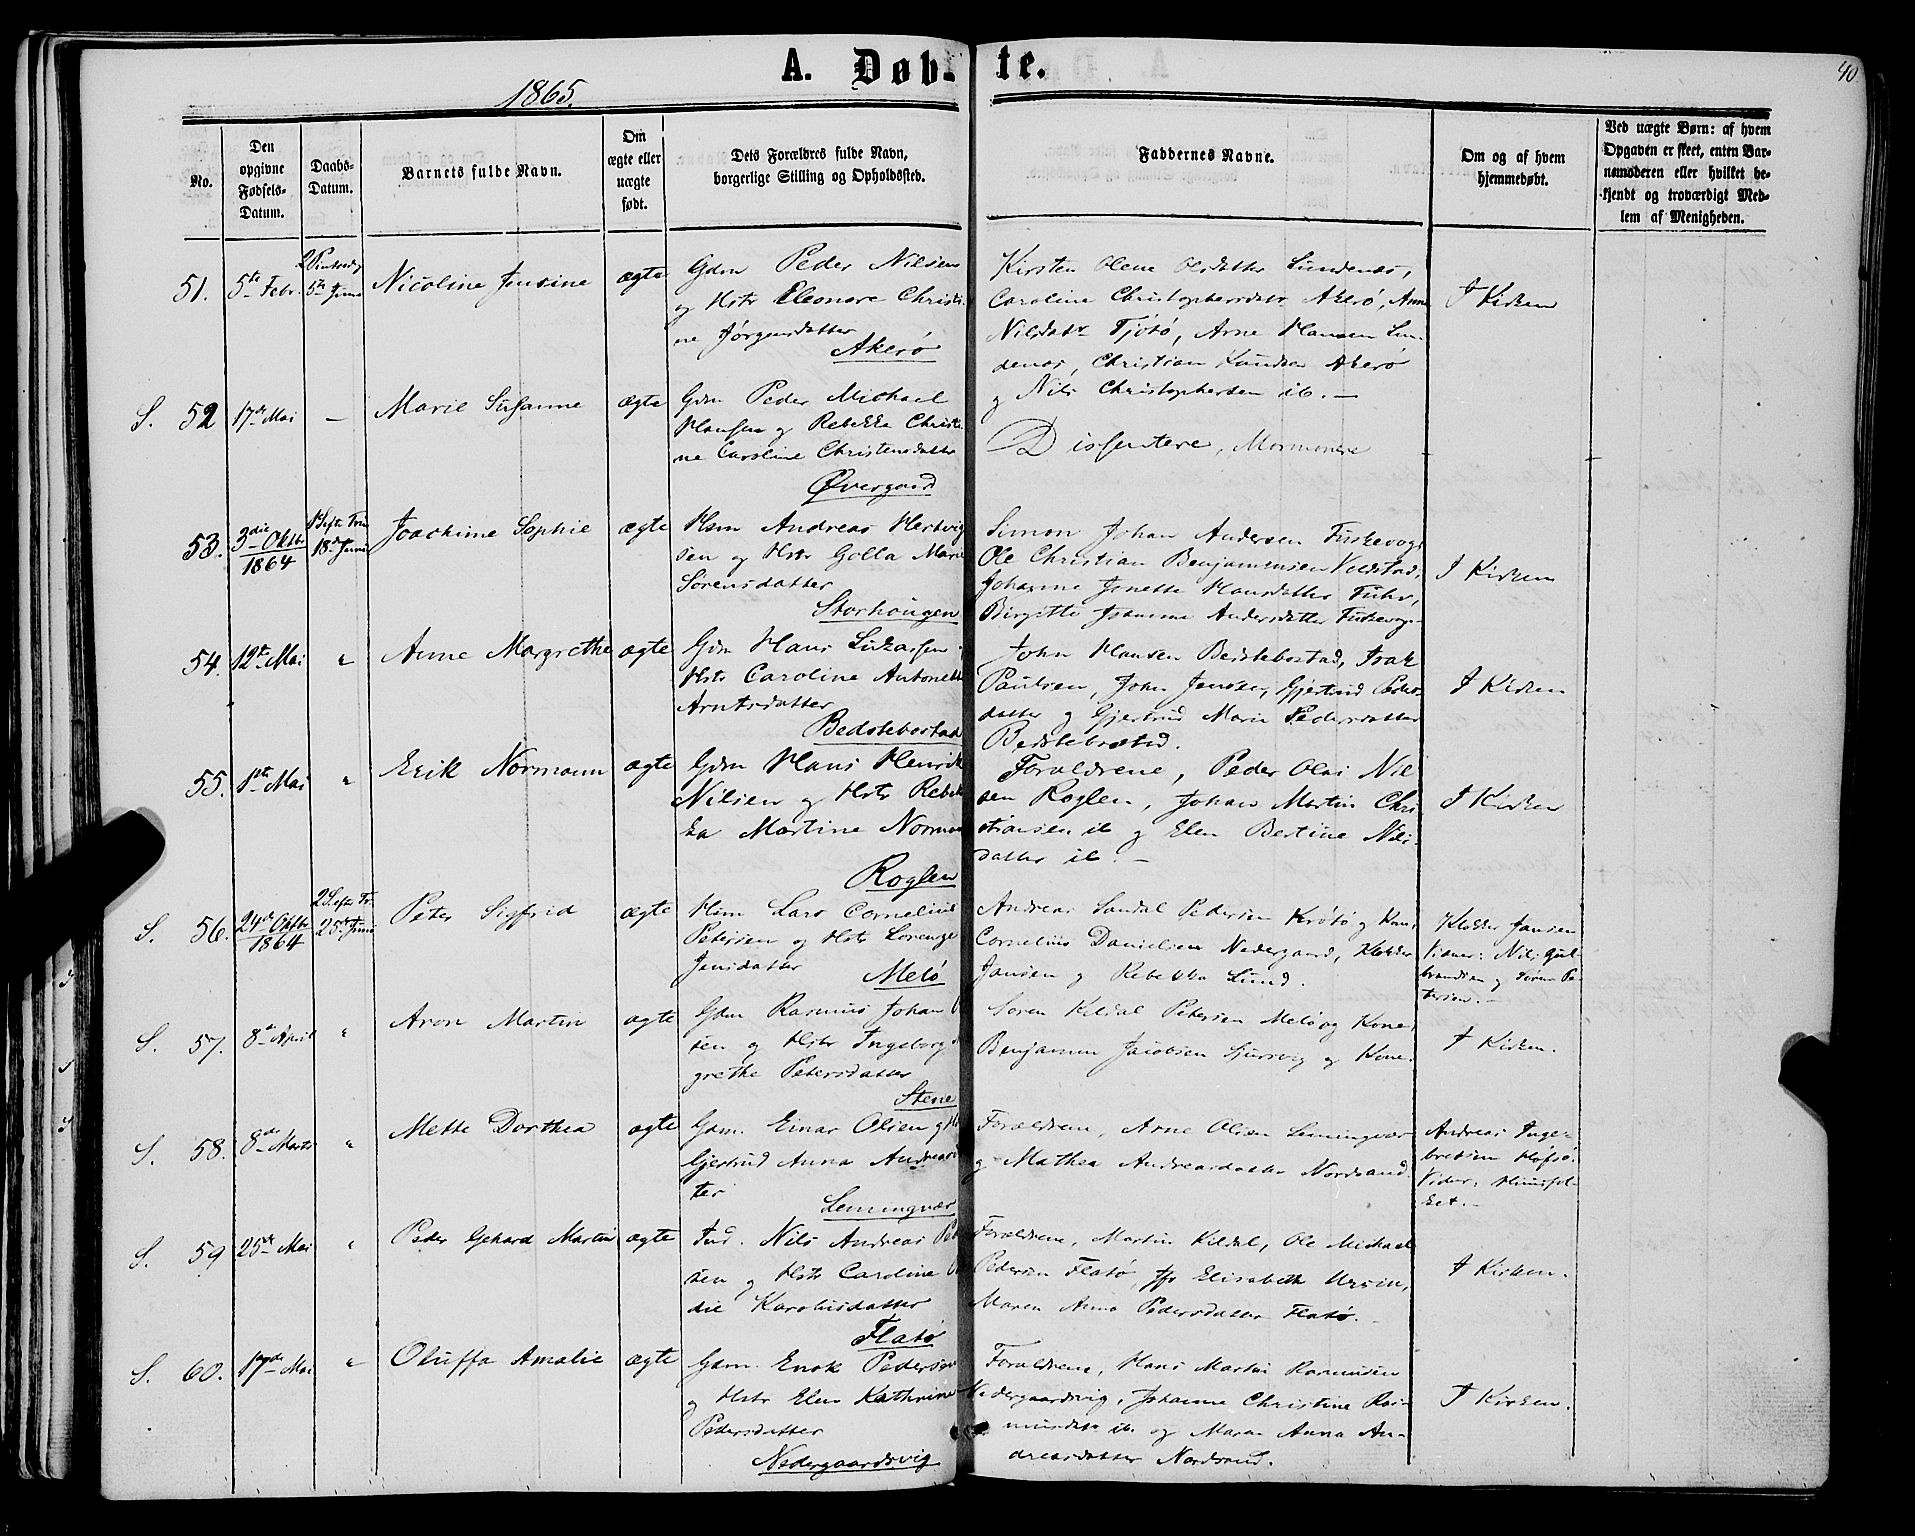 40
A. Døb-te.
1865.
No.
Den opgivne Fødsels-Datum.
Daabs-Datum.
Barnets fulde Navn.
Om ægte eller uægte født.
Dets Forældres fulde Navn, borgerlige Stilling og Opholdssted.
Faddernes Navne.
Om og af hvem hjemmedøbt.
Ved uægte Børn: af hvem Opgaven er skeet, enten Barnemoderen eller hvilket bekjendt og troværdigt Medlem af Menigheden.
51. 5te Febr. 5te Juni Nicoline Jensine ægte
Gdm Peder Nilsen
og Hstr Eleonore Christi
ne Jørgensdatter
Akerø
Kirsten Olene Olsdatter Lundenes,
Caroline Christophersdatr Akerø, Anne
Nilsdatr Tjötö, Arne Hansen Lun-
denes, Christian Knudsen Akerø
og Nils Christophersen ib. —
I Kirken
S. 52 17de Mai — Marie Susanne ægte
Gdm Peder Michael
Hansen og Rebekka Christi
ne Caroline Christensdatter
Øvergaard
Dissentere, Mormonere
53. 3die Oktbr 1864 18de Juni Joachime Sophie ægte
Hsm Andreas Hertvig
sen og Hstr Golla Marie
Sørensdatter
Storhougen
Simon Johan Andersen Fuskevog,
Ole Christian Benjaminsen
Johanne Jenette Hansdatter
Birgitte Johanne Andersdatter Fuskevog.
I Kirken
54. 12te Mai " Anne Margrethe ægte
Gdm Hans Lukassen
Hstr Caroline Antonette
Arntsdatter
Bedstebostad
John Hansen Bedstebostad, Isak
Paulsen, John Jensen, Gjertrud Peders
datter og Gjertrud Marie Pedersdatter
Bedstebostad.
I Kirken
55. 1ste Mai " Erik Normann ægte
Gdm Hans Henrik
Nilsen og Hstr Rebek
ka Martine Norman
Roglen
Forældrene, Peder Olai Nil
sen Roglen, Johan Martin Chri
stiansen ib og Elen Bertine Nils-
datter ib. —
I Kirken
S. 56. 24de Oktbr 1864 25de Juni Peter Sigfrid ægte
Hsm Lars Cornelius
Petersen og Hstr Lorenze
Jensdatter
Melö
Andreas Sandal Pedersen Krötö og Kone,
Cornelius Danielsen Nedergaard, Klokker
Jansen og Rebekka Lund.
Klokker Jansen
Vidner: Nils Gul-
brandsen og Søren Pe
tersen. —
S. 57. 8de April " Aron Martin ægte
Gdm Rasmus Johan
sen og Hstr Ingeborg
grethe Petersdatter
Stene
Søren Kildal Petersen Melö og Kone,
Benjamin Jacobsen og Kone.
I Kirken.
S. 58. 8de Marts " Mette Dorthea ægte
Gdm. Einar Olsen og H
Gjertrud Anna Andreasd
ter
Lemingvær
Forældrene, Arne Olsen Lemingvær
og Mathea Andreasdatter Nordsand.
Andreas Inge-
bretsen Hofsö.
Vidner: Huusfol-
ket. —
S. 59 25de Mai " Peder Gehard Martin ægte
Ind. Nils Andreas Pet
sen og Hstr Caroline
die Karolusdatter
Flatö
Forældrene, Martin Kildal, Ole Michael
Pedersen Flatö, Jfr Elisabeth Ursin,
Maren Anna Pedersdatter Flatö.
I Kirken.
S. 60. 17de Mai " Oluffa Amalie ægte
Gdm. Enok Pedersen
og Hstr Elen Kathrine
Pedersdatter
Nedergaardsvig
Forældrene, Hans Martin Rasmussen
Nedergaardsvig, Johanne Christine Ras-
musdtr ib. og Maren Anna An-
dreasdatter Nordsand.
I Kirken.